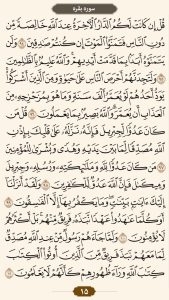 سوره بقره
قُلْ إِن كَانَتْ لَكُمُ ٱلدَّارُ ٱلْءَاخِرَةُ عِندَ ٱللَّهِ خَالِصَةً مِّن
دُونِ ٱلنَّاسِ فَتَمَنَّوُا۟ ٱلْمَوْتَ إِن كُنتُمْ صَٰدِقِينَ ﴿٩٤﴾ وَلَن
يَتَمَنَّوْهُ أَبَدًۢا بِمَا قَدَّمَتْ أَيْدِيهِمْ وَٱللَّهُ عَلِيمٌۢ بِٱلظَّٰلِمِينَ
﴿٩٥﴾ وَلَتَجِدَنَّهُمْ أَحْرَصَ ٱلنَّاسِ عَلَىٰ حَيَوٰةٍ وَمِنَ ٱلَّذِينَ أَشْرَكُوا۟
يَوَدُّ أَحَدُهُمْ لَوْ يُعَمَّرُ أَلْفَ سَنَةٍ وَمَا هُوَ بِمُزَحْزِحِهِۦ مِنَ
ٱلْعَذَابِ أَن يُعَمَّرَ وَٱللَّهُ بَصِيرٌۢ بِمَا يَعْمَلُونَ ﴿٩٦﴾ قُلْ مَن
كَانَ عَدُوًّا لِّجِبْرِيلَ فَإِنَّهُۥ نَزَّلَهُۥ عَلَىٰ قَلْبِكَ بِإِذْنِ
ٱللَّهِ مُصَدِّقًا لِّمَا بَيْنَ يَدَيْهِ وَهُدًى وَبُشْرَىٰ لِلْمُؤْمِنِينَ
﴿٩٧﴾ مَن كَانَ عَدُوًّا لِّلَّهِ وَمَلَٰٓئِكَتِهِۦ وَرُسُلِهِۦ وَجِبْرِيلَ
وَمِيكَىٰلَ فَإِنَّ ٱللَّهَ عَدُوٌّ لِّلْكَٰفِرِينَ ﴿٩٨﴾ وَلَقَدْ أَنزَلْنَآ
إِلَيْكَ ءَايَٰتٍۭ بَيِّنَٰتٍ وَمَا يَكْفُرُ بِهَآ إِلَّا ٱلْفَٰسِقُونَ ﴿٩٩﴾
أَوَكُلَّمَا عَٰهَدُوا۟ عَهْدًا نَّبَذَهُۥ فَرِيقٌ مِّنْهُم بَلْ أَكْثَرُهُمْ
لَا يُؤْمِنُونَ ﴿١٠٠﴾ وَلَمَّا جَآءَهُمْ رَسُولٌ مِّنْ عِندِ ٱللَّهِ مُصَدِّقٌ
لِّمَا مَعَهُمْ نَبَذَ فَرِيقٌ مِّنَ ٱلَّذِينَ أُوتُوا۟ ٱلْكِتَٰبَ
كِتَٰبَ ٱللَّهِ وَرَآءَ ظُهُورِهِمْ كَأَنَّهُمْ لَا يَعْلَمُونَ ﴿١٠١﴾
١٥